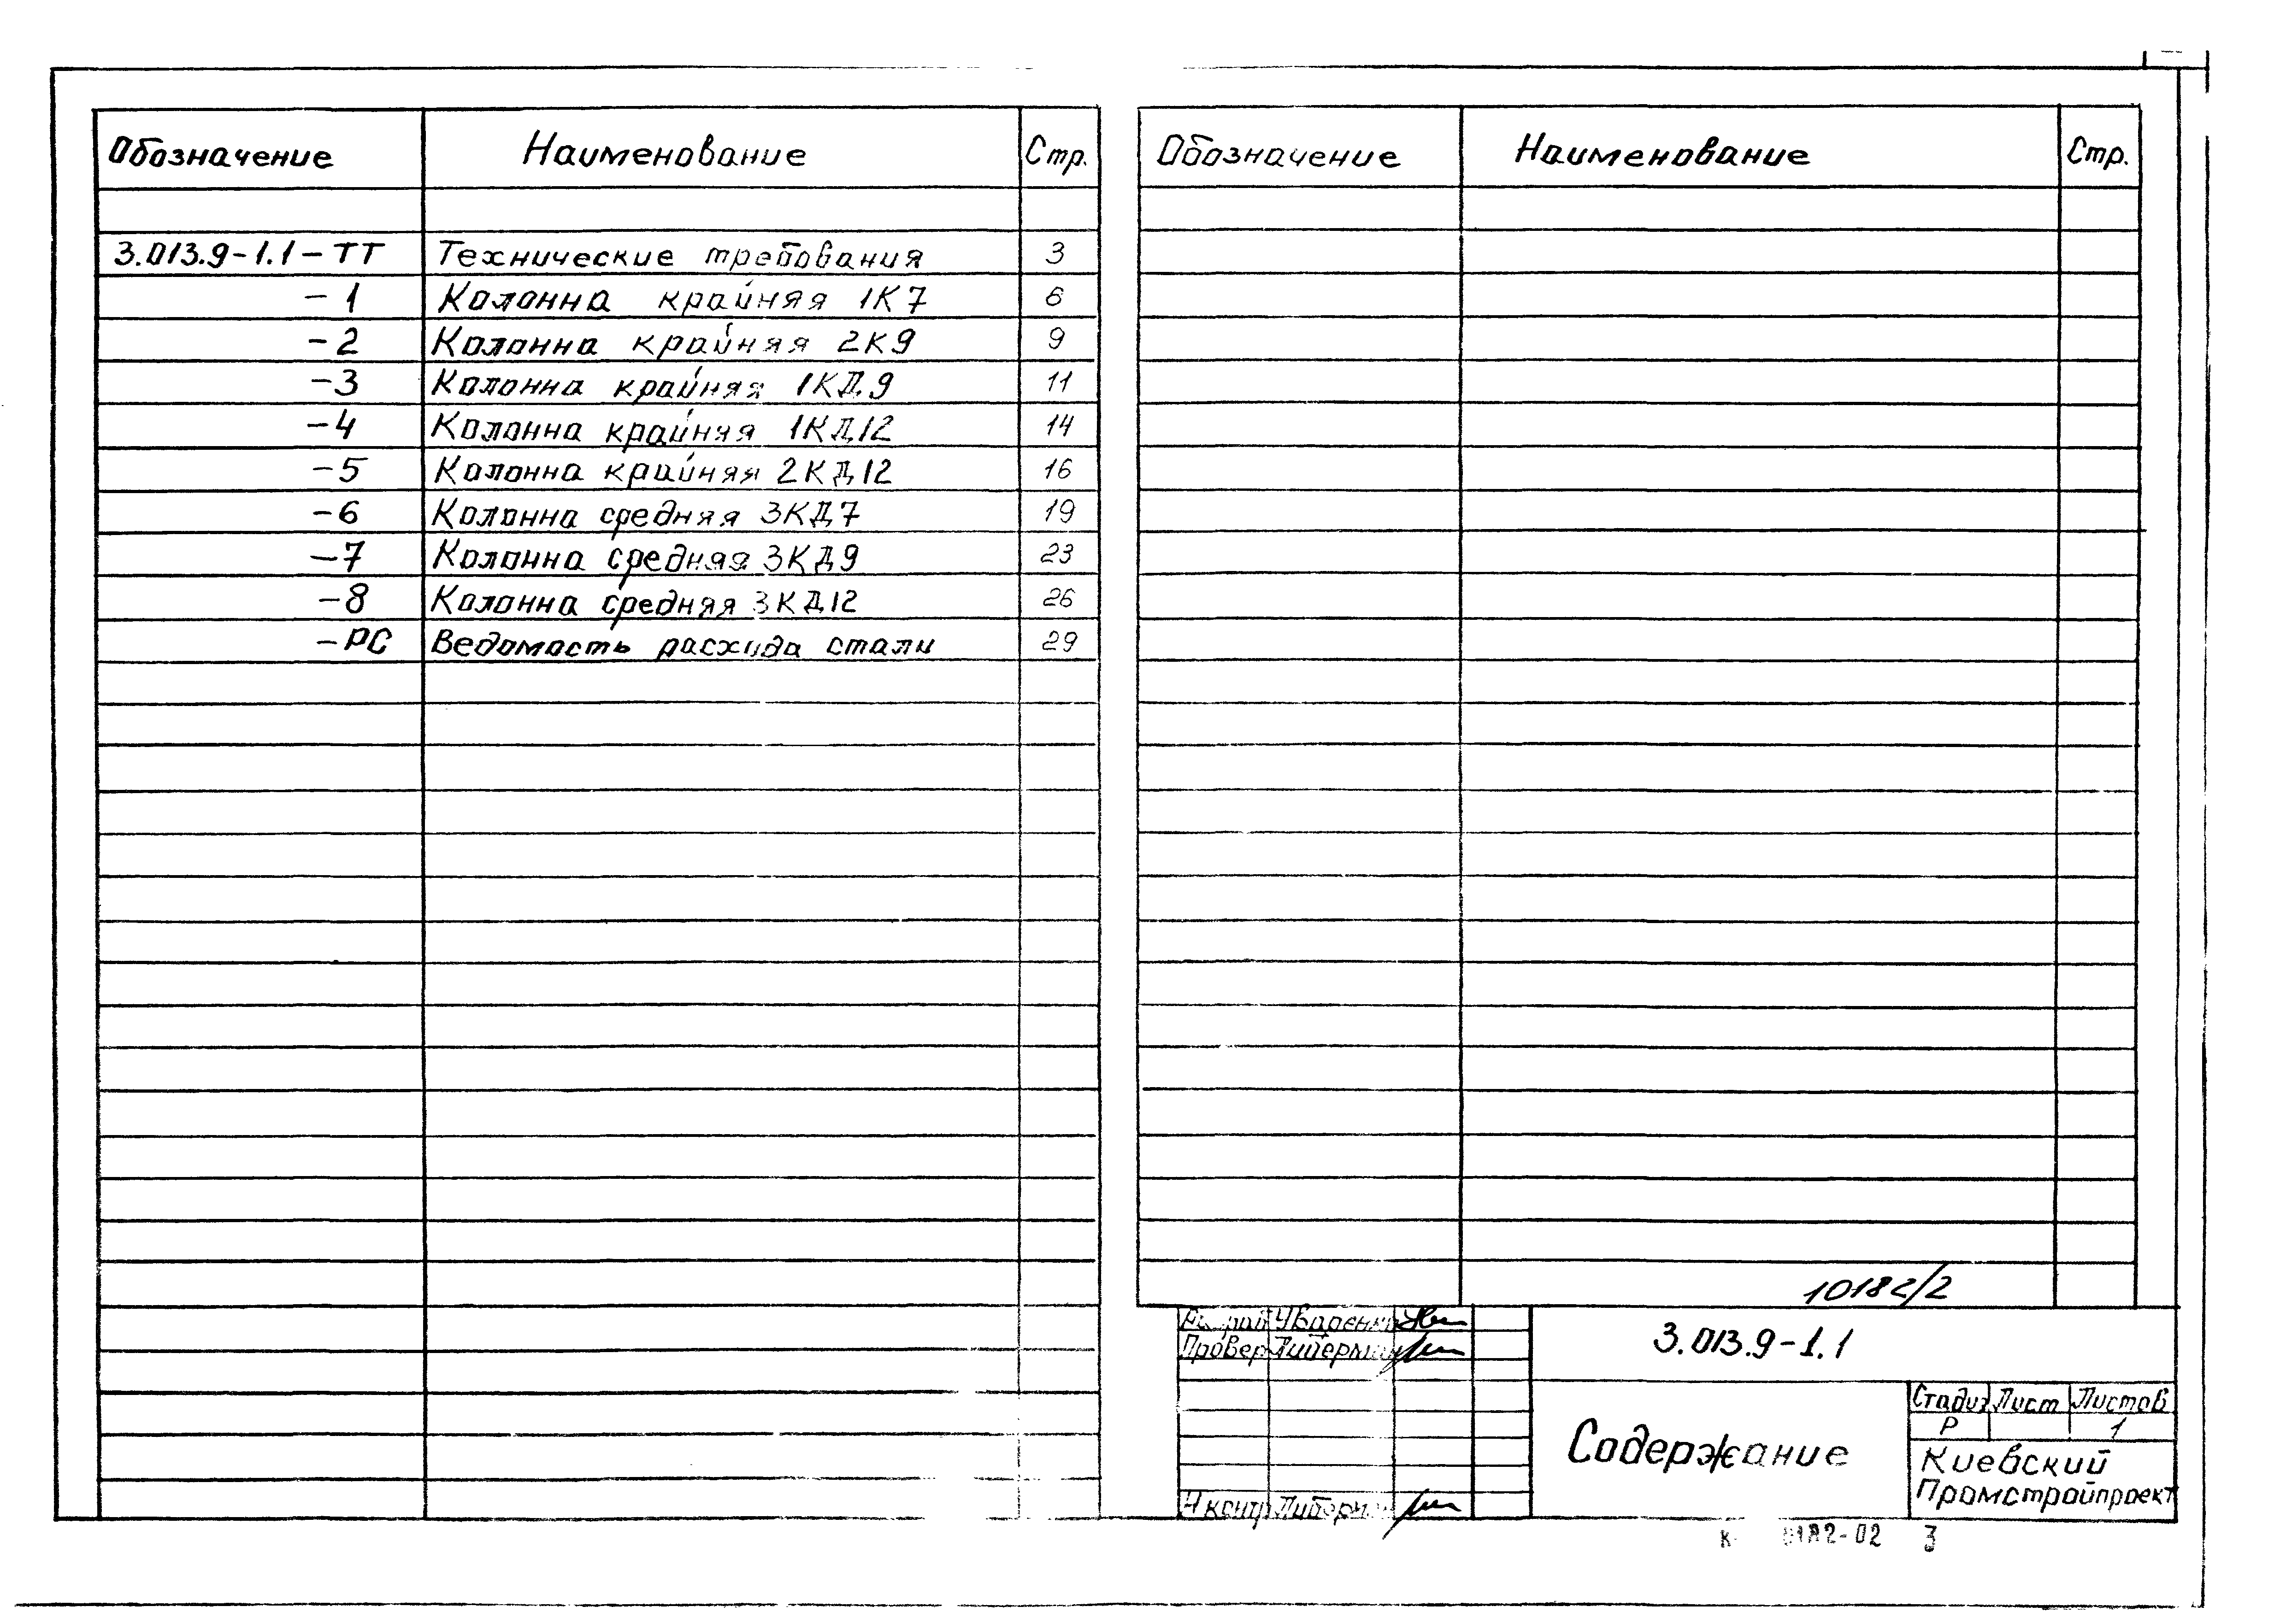 Обозначение Наименование Стр.
3.013.9-1.1-ТТ Технические требования 3
-1 Колонна крайняя 1К7 6
-2 Колонна крайняя 2К9 9
-3 Колонна крайняя 1КД9 11
-4 Колонна крайняя 1КД12 14
-5 Колонна крайняя 2КД12 16
-6 Колонна средняя 3КД7 19
-7 Колонна средняя 3КД9 23
-8 Колонна средняя 3КД12 26
-РС Ведомость расхода стали 29
Обозначение Наименование Стр.
10182/2
Провер. Либерман
Н контр Либерман
3.013.9-1.1
Содержание
Стадия Лист Листов
Р 1
Киевский
Промстройпроект
3